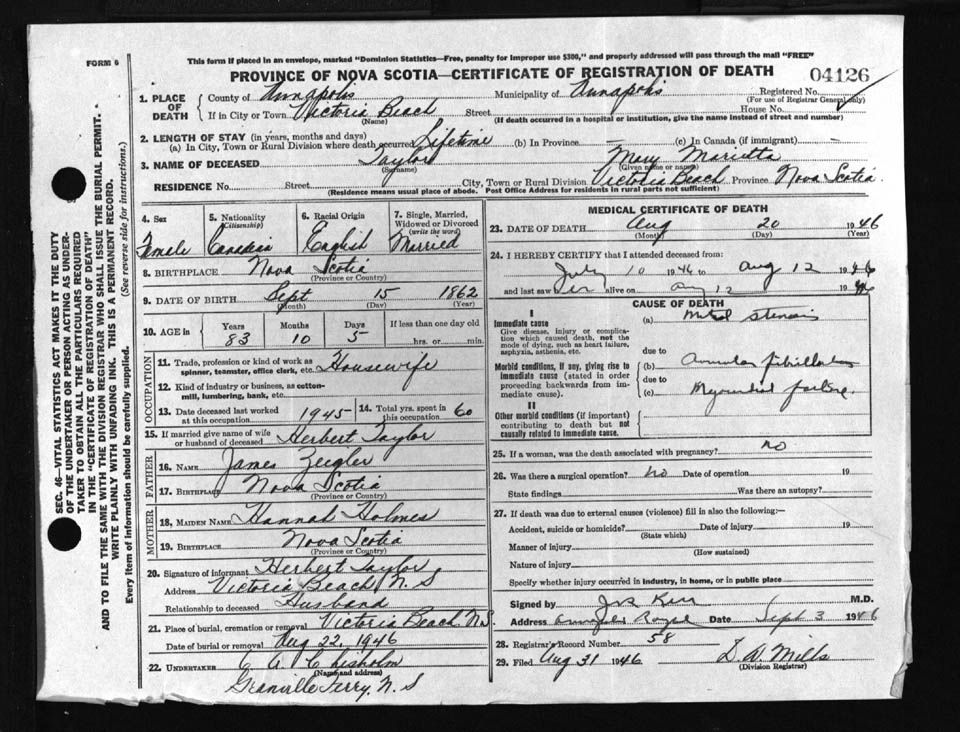 This form if placed in an envelope, marked "Dominion Statistics—Free, penalty for improper use $300," and properly addressed will pass through the mail "FREE"
FORM 6
PROVINCE OF NOVA SCOTIA—CERTIFICATE OF REGISTRATION OF DEATH 04126
1. PLACE OF DEATH County of Annapolis Municipality of Annapolis Registered No.
(For use of Registrar General only)
If in City or Town Victoria Beach Street House No.
(Name) (If death occurred in a hospital or institution, give the name instead of street and number)
2. LENGTH OF STAY (in years, months and days)
(a) In City, Town or Rural Division where death occurred Lifetime (b) In Province — (c) In Canada (if immigrant) —
3. NAME OF DECEASED Taylor Mary Marietta
(Surname) (Given name or names)
RESIDENCE No. Street City, Town or Rural Division Victoria Beach Province Nova Scotia
(Residence means usual place of abode. Post Office Address for residents in rural parts not sufficient)
4. Sex Female
5. Nationality (Citizenship) Canadian
6. Racial Origin English
7. Single, Married, Widowed or Divorced (write the word) Married
8. BIRTHPLACE Nova Scotia
(Province or Country)
9. DATE OF BIRTH Sept 15 1862
(Month) (Day) (Year)
10. AGE in Years Months Days If less than one day old
83 10 5 hrs. or min.
OCCUPATION
11. Trade, profession or kind of work as spinner, teamster, office clerk, etc. Housewife
12. Kind of industry or business, as cotton-mill, lumbering, bank, etc.
13. Date deceased last worked at this occupation 1945 14. Total yrs. spent in this occupation 60
15. If married give name of wife or husband of deceased Herbert Taylor
FATHER
16. NAME James Zeigler
17. BIRTHPLACE Nova Scotia
(Province or Country)
MOTHER
18. MAIDEN NAME Hannah Holmes
19. BIRTHPLACE Nova Scotia
(Province or Country)
20. Signature of informant Herbert Taylor
Address Victoria Beach, N. S
Relationship to deceased Husband
21. Place of burial, cremation or removal Victoria Beach, N.S.
Date of burial or removal Aug 22, 1946
22. UNDERTAKER C. A. Chisholm
(Name and address)
Granville Ferry, N. S
MEDICAL CERTIFICATE OF DEATH
23. DATE OF DEATH Aug 20 1946
(Month) (Day) (Year)
24. I HEREBY CERTIFY that I attended deceased from:
July 10 1946 to Aug 12 1946
and last saw her alive on Aug 12 1946
CAUSE OF DEATH
I
Immediate cause (a) Mitral stenosis
Give disease, injury or complication which caused death, not the mode of dying, such as heart failure, asphyxia, asthenia, etc.
due to
Morbid conditions, if any, giving rise to immediate cause (stated in order proceeding backwards from immediate cause). (b) Auricular fibrillation
due to
(c) Myocardial failure
II
Other morbid conditions (if important) contributing to death but not causally related to immediate cause.
25. If a woman, was the death associated with pregnancy? no
26. Was there a surgical operation? no Date of operation 19
State findings Was there an autopsy?
27. If death was due to external causes (violence) fill in also the following:—
Accident, suicide or homicide? Date of injury 19
(State which)
Manner of injury
(How sustained)
Nature of injury
Specify whether injury occurred in industry, in home, or in public place
Signed by Kerr M.D.
Address Annapolis Royal Date Sept 3 1946
28. Registrar's Record Number 58
29. Filed Aug 31 1946 D. W. Mills
(Division Registrar)
SEC. 46—VITAL STATISTICS ACT MAKES IT THE DUTY
OF THE UNDERTAKER OR PERSON ACTING AS UNDER-
TAKER TO OBTAIN ALL THE PARTICULARS REQUIRED
IN THE "CERTIFICATE OF REGISTRATION OF DEATH"
AND TO FILE THE SAME WITH THE DIVISION REGISTRAR WHO SHALL ISSUE THE BURIAL PERMIT.
WRITE PLAINLY WITH UNFADING INK. THIS IS A PERMANENT RECORD.
Every item of information should be carefully supplied. (See reverse side for instructions.)